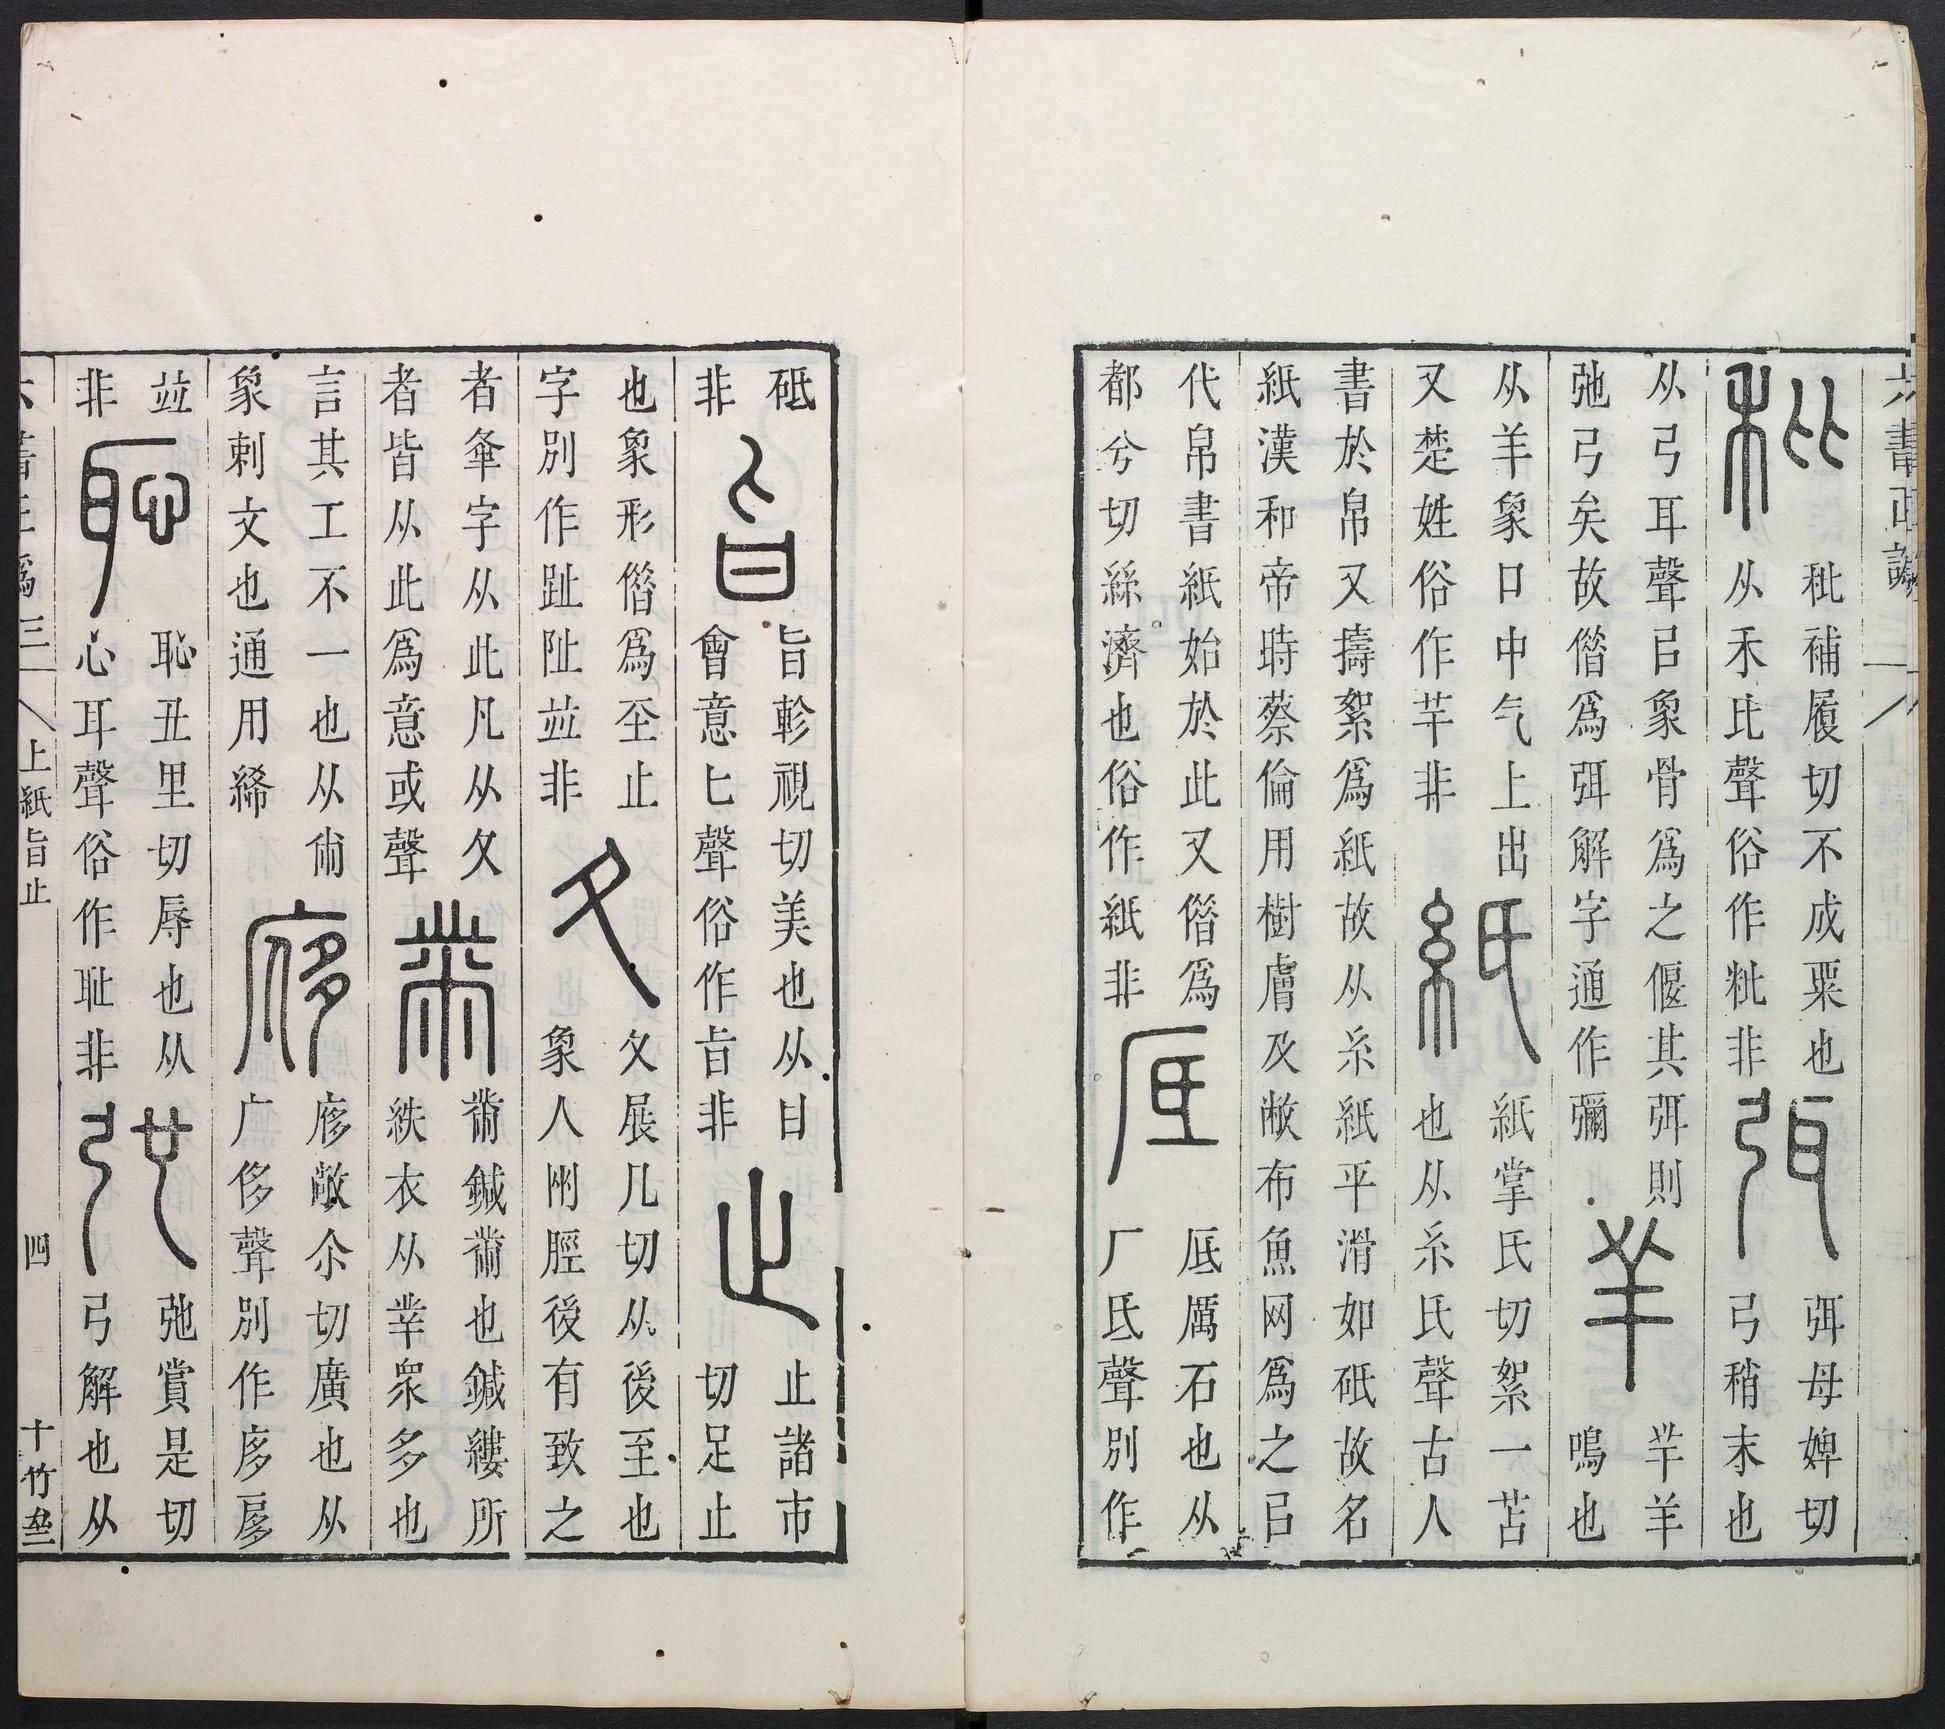 六書正譌
秕
秕補履切不成粟也
从禾比聲俗作粃非
弭
弭母婢切
弓稍末也
从弓耳聲㠯象骨爲之偃其弭則
弛弓矣故偺爲弭解字通作彌
羋
羋羊
鳴也
从羊象口中气上出
又楚姓俗作芈非
紙
紙掌氏切絮一苫
也从糸氏聲古人
書於帛又擣絮爲紙故从糸紙平滑如砥故名
紙漢和帝時蔡倫用樹膚及敝布魚网爲之㠯
代帛書紙始於此又偺爲
都兮切絲濟也俗作紙非
厎
厎厲石也从
厂氐聲別作
砥
非
旨
旨軫視切美也从甘
會意匕聲俗作㫖非
止
止諸市
切足止
也象形偺爲至止
字別作趾阯竝非
夂
夂展几切从後至也
象人兩脛後有致之
者夆字从此凡从夂
者皆从此爲意或聲
黹
黹鍼黹也鍼縷所
紩衣从丵眾多也
言其工不一也从㡀
象刺文也通用絺
㢋
㢋敞尒切廣也从
广侈聲別作
竝
非
恥
恥丑里切辱也从
心耳聲俗作耻非
弛
弛賞是切
弓解也从
六書正譌三 上紙旨止 四 十竹齋